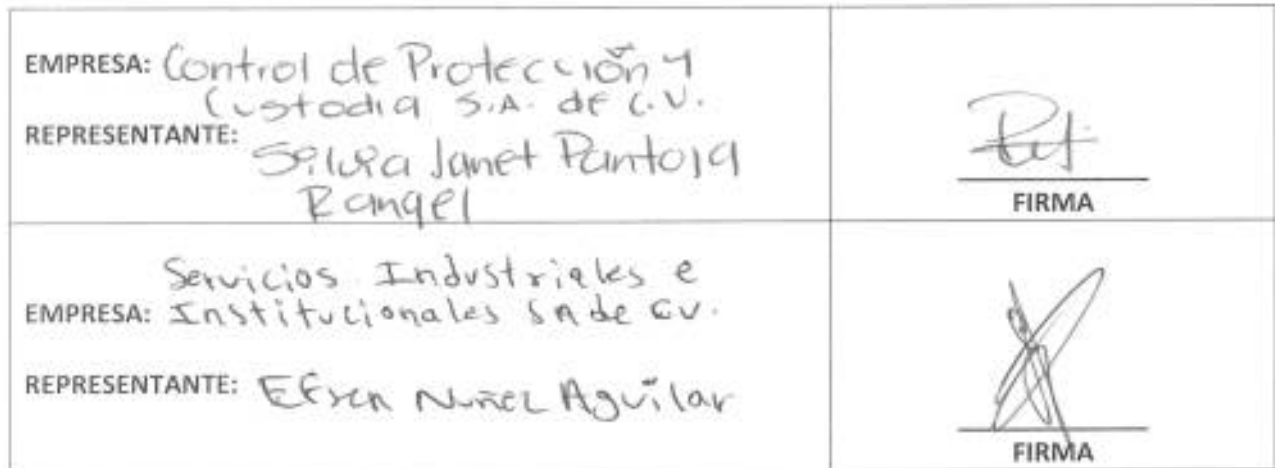 EMPRESA: Control de Protección y
Custodia S.A. de C.V.
REPRESENTANTE:
Silvia Janet Pantoja
Rangel
FIRMA
Servicios Industriales e
EMPRESA: Institucionales SA de CV.
REPRESENTANTE: Efren Nuñez Aguilar
FIRMA